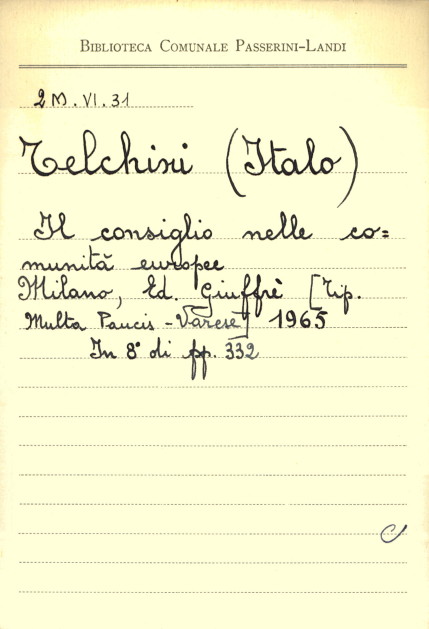 BIBLIOTECA COMUNALE PASSERINI-LANDI
2 M. VI. 31
Telchini (Italo)
Il consiglio nelle co=
munità europee
Milano, Ed. Giuffrè [Tip.
Multa Paucis - Varese] 1965
In 8° di pp. 332